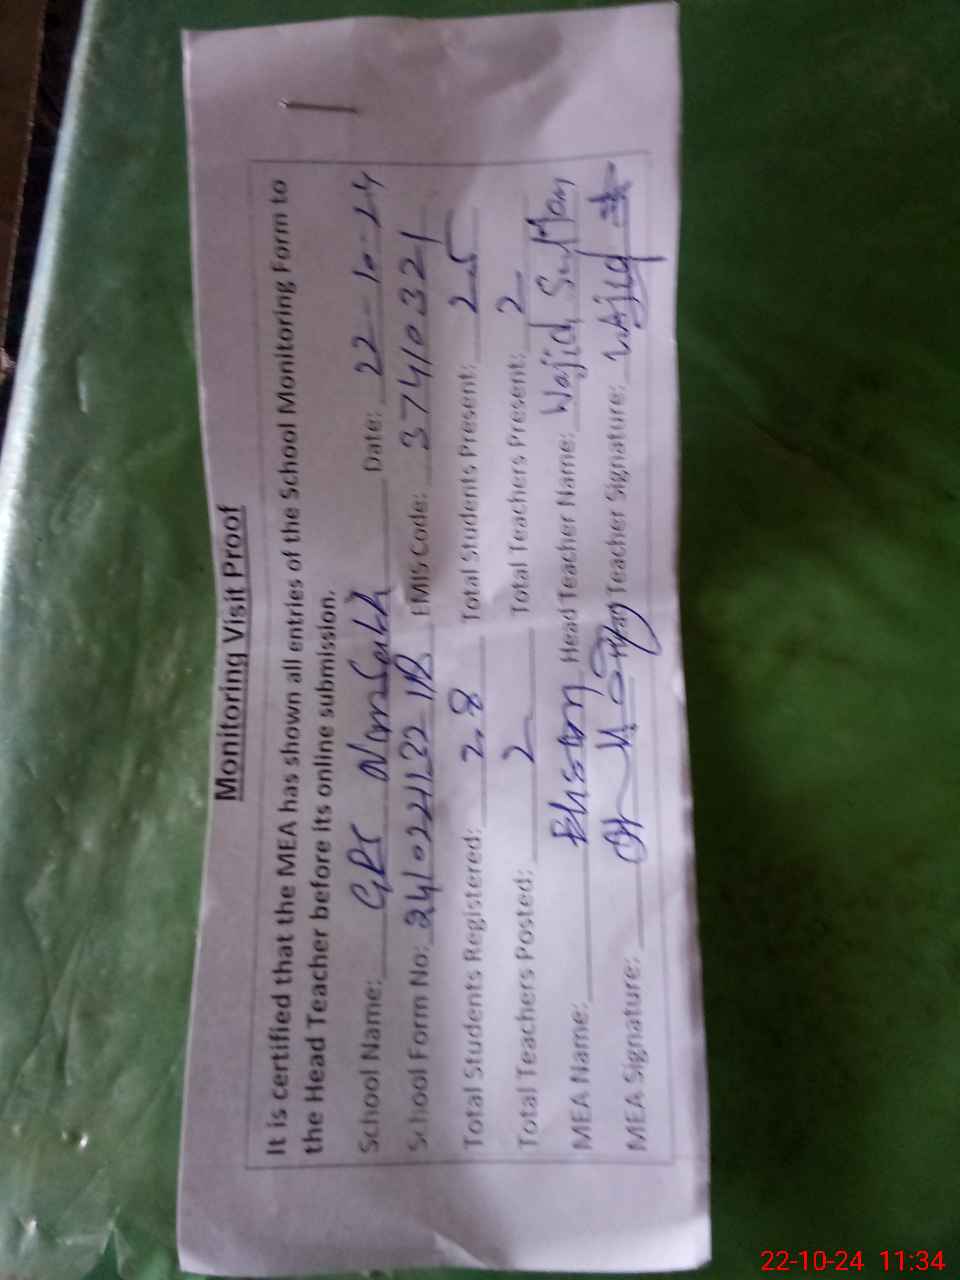 Monitoring Visit Proof
It is certified that the MEA has shown all entries of the School Monitoring Form to
the Head Teacher before its online submission.
School Name: GPS Date: 22-10-24
School Form No: EMIS Code: 37410321
Total Students Registered: 28 Total Students Present: 25
Total Teachers Posted: 2 Total Teachers Present: 2
MEA Name: Head Teacher Name: Wajid Sultan
MEA Signature: Teacher Signature: Wajid
22-10-24 11:34